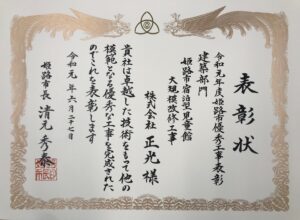 表彰状
令和元年度姫路市優秀工事表彰
建築部門
姫路市宿泊型児童館
大規模改修工事
株式会社 正光 様
貴社は卓越した技術をもって他の
模範となる優秀な工事を完成された
のでこれを表彰します
令和元年六月二十七日
姫路市長 清元秀泰